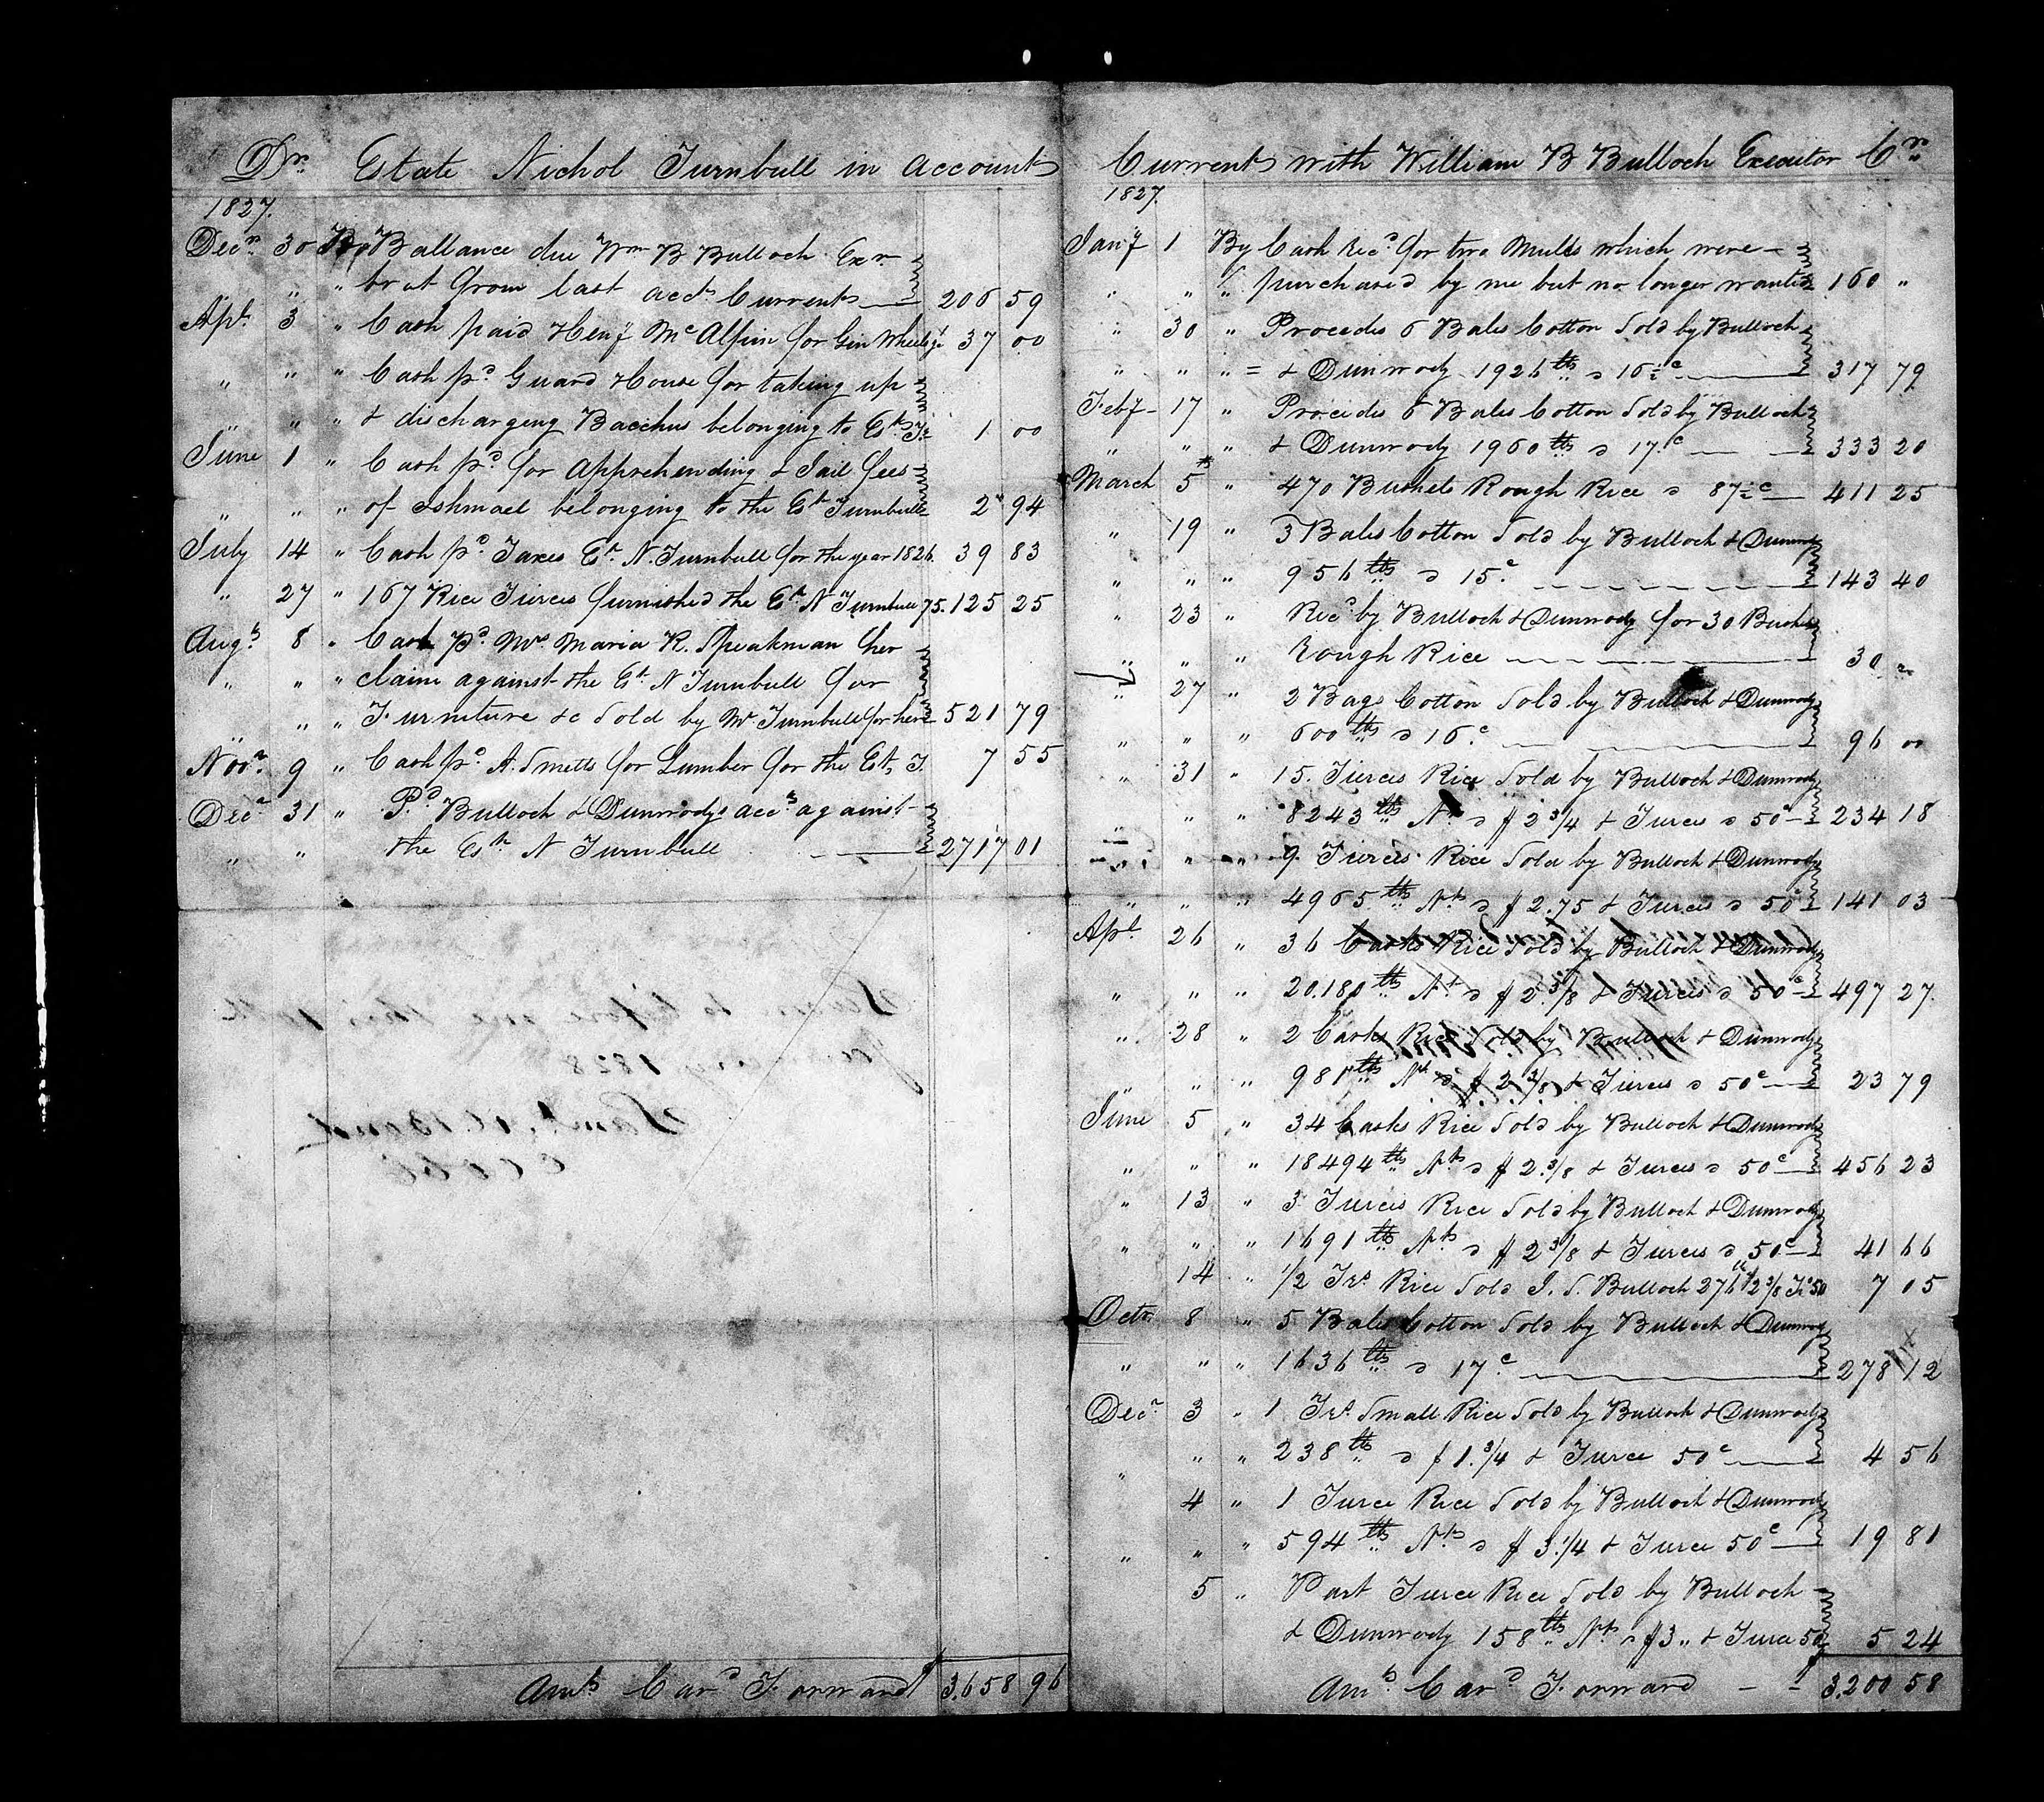 Dr. Estate Nichol Turnbull in account
1827.
Decr. 30 Ballance due Wm B Bulloch Exr
" " brot from last acct Current 206 59
Apl. 3 " Cash paid Heny McAlpin for Gin Wheels &c 37 00
" " " Cash pd Guard House for taking up
" " & discharging Bacchus belonging to Est. T. 1 00
June 1 " Cash pd for apprehending & Jail fees
" " " of Ishmael belonging to the Est Turnbull 2" 94
July 14 " Cash pd Taxes Est. N. Turnbull for the year 1826. 39 83
" 27 " 167 Rice Tierces furnished the Est N Turnbull 75. 125 25
Augt 8 " Cash pd Mrs Maria R. Speakman her
" " " claim against the Est N Turnbull for
" " " Furniture &c Sold by Mr Turnbull for her 521 79
Novr. 9 " Cash pd A. Smetts for Lumber for the Est, T. 7 55
Decr 31 " Pd Bulloch & Dunwodys acct against
" " the Est N Turnbull 2717 01
Amt Card Forward 3.658 96
Current with William B Bulloch Executor Cr.
1827.
Jany 1 By Cash Recd for two Mules which were
" " " purchased by me but no longer wanted 160 "
" 30 " Proceeds 6 Bales Cotton Sold by Bulloch
" " " = & Dunwody 1926 lbs a 16½c 317 79
Feby 17 " Proceeds 6 Bales Cotton Sold by Bulloch
" " " & Dunwody 1960 lbs a 17c 333 20
March 5th " 470 Bushels Rough Rice a 87½c 411 25
" 19 " 3 Bales Cotton Sold by Bulloch & Dunwody
" " " 956 lbs a 15c 143 40
" 23 " Recd by Bulloch & Dunwody for 30 Bushs
" " " Rough Rice 30 "
" 27 " 2 Bags Cotton Sold by Bulloch & Dunwody
" " " 600 lbs a 16c 96 00
" 31 " 15. Tierces Rice Sold by Bulloch & Dunwody
" " " 8243 lbs Nt a $2 3/4 & Tierces a 50c 234 18
" " " 9 Tierces Rice Sold by Bulloch & Dunwody
" " " 4965 lbs Nt a $2.75 & Tierces a 50c 141 03
Apl. 26 " 36 Casks Rice Sold by Bulloch & Dunwody
" " " 20.180 lbs Nt a $2.3/8 & Tierces a 50c 497 27.
" 28 " 2 Casks Rice Sold by Bulloch & Dunwody
" " " 981 lbs Nt a $2 3/8 & Tierces a 50c 23 79
June 5 " 34 Casks Rice Sold by Bulloch & Dunwody
" " " 18494 lbs Nt a $2.3/8 & Tierces a 50c 456 23
" 13 " 3 Tierces Rice Sold by Bulloch & Dunwody
" " " 1691 lbs Nt a $2 3/8 & Tierces a 50c 41 66
14 " 1/2 Trs Rice Sold J. S. Bulloch 276 lbs 2 3/8 Tr 50 7 05
Octr 8 " 5 Bales Cotton Sold by Bulloch & Dunwody
" " " 1636 lbs a 17c 278 12
Decr 3 " 1 Trs Small Rice Sold by Bulloch & Dunwody
" " " 238 lbs a $1.3/4 & Tierce 50c 4 56
4 " 1 Tierce Rice Sold by Bulloch & Dunwody
" " " 594 lbs Nt a $3.1/4 & Tierce 50c 19 81
5 " Part Tierce Rice Sold by Bulloch
& Dunwody 158 lbs Nt a $3 " & Tierce 50 5 24
Amt Card Forward 3.200 58